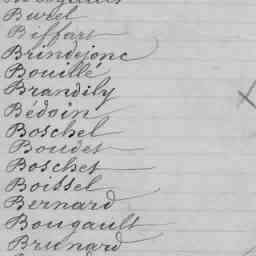 Buret
Biffart
Brindejonc
Bouillé
Brandily
Bédoin
Boschel
Boudet
Boschet
Boissel
Bernard
Bougault
Brunard